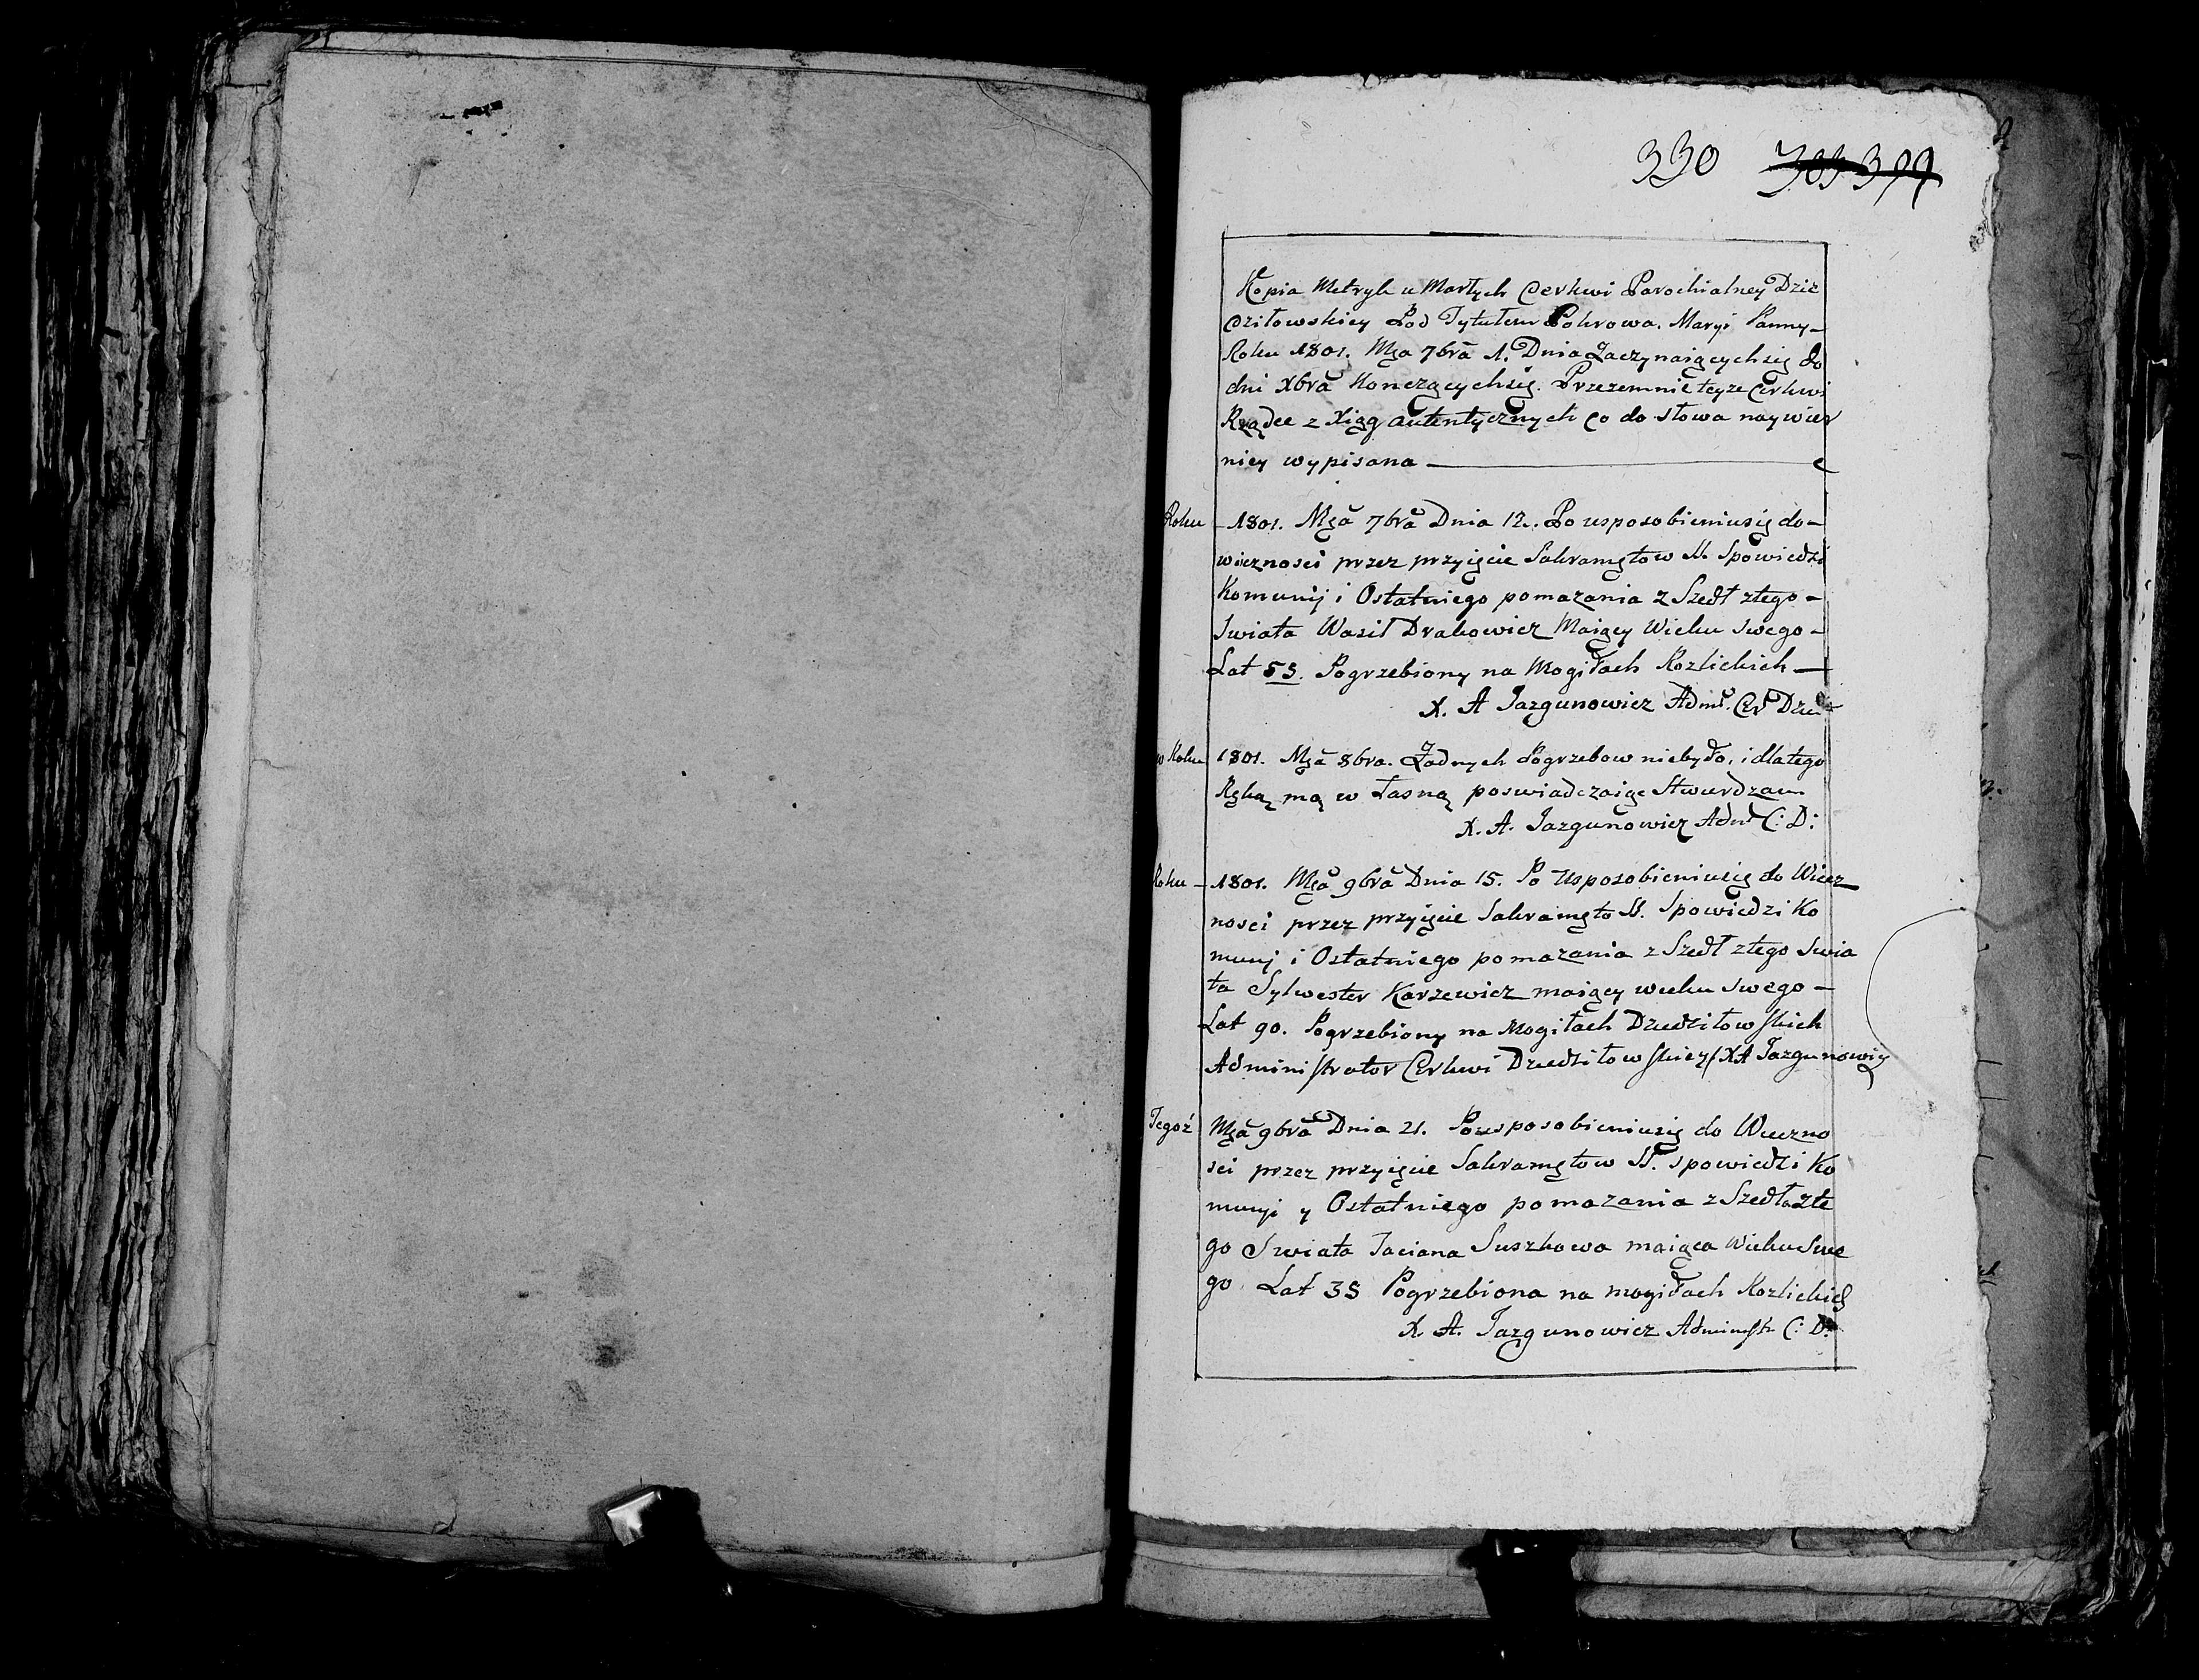 330 303 399
Kopia Metryk u Martych Cerkwi Parochialney Dzie
dziłowskiey Pod Tytułem Pokrowa. Maryi Panny-
Roku 1801. Mca 7bra 1. Dnia Zaczynaiącychsię do
dni Xbra Konczącychsię. Przezemnie teyze Cerkwi
Rządce z Xiąg autentycznych co do słowa naywier
niey wypisana
Roku 1801. Mca 7bra Dnia 12. Po usposobieniusię do-
wieznosci przez przyięcie Sakramętow SS. Spowiedzi
Komunij i Ostatniego pomazania z Szedł ztego-
Swiata Wasil Drakowicz Maiący Wieku Swego-
Lat 55. Pogrzebiony na Mogiłach Kozlickich
X. A Jazgunowicz Admr. Cer
w Roku 1801. Mca 8bra. Żadnych Pogrzebow niebyło, i dlatego
Ręką mą w łasną poswiadczaiąc Stwerdzam
X. A. Jazgunowicz Admr C: D:
Roku 1801. Mca 9bra Dnia 15. Po Usposobieniusię do Wiecz
nosci przez przyięcie Sakramęto SS. Spowiedzi Ko
munj i Ostatniego pomazania z Szedł ztego Swia
ta Sylwester Karzewicz maiący wieku Swego-
Lat 90. Pogrzebiony na Mogiłach Dziedziłowskich
Administrator Cerkwi Dziedziłowskiey (XA Jazgunowicz
Tegoż Mca 9bra Dnia 21. Po usposobieniusię do Wieczno
sci przez przyięcie Sakramętow SS. spowiedzi Ko
munyi y Ostatniego pomazania z Szedła zte
go Swiata Taciana Suszkowa maiąca Wieku Swe
go Lat 35 Pogrzebiona na mogiłach Kozlickich
X A. Jazgunowicz Administr C: D: